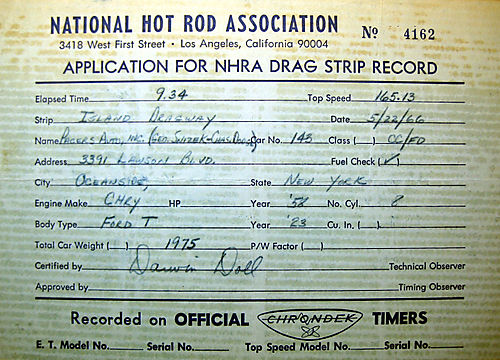 NATIONAL HOT ROD ASSOCIATION Nº 4162
3418 West First Street • Los Angeles, California 90004
APPLICATION FOR NHRA DRAG STRIP RECORD
Elapsed Time 9.34 Top Speed 165.13
Strip ISLAND DRAGWAY Date 5/22/66
Name PACERS AUTO, INC. (GEO. SNIZEK-CHAS. ) Car No. 143 Class ( ) CC/FD
Address 3391 LAWSON BLVD. Fuel Check (✓)
City OCEANSIDE, State NEW YORK
Engine Make CHRY HP Year '58 No. Cyl. 8
Body Type FORD T Year '23 Cu. In. ( )
Total Car Weight ( ) 1975 P/W Factor ( )
Certified by Darwin Doll Technical Observer
Approved by Timing Observer
Recorded on OFFICIAL CHRONDEK TIMERS
E. T. Model No. Serial No. Top Speed Model No. Serial No.